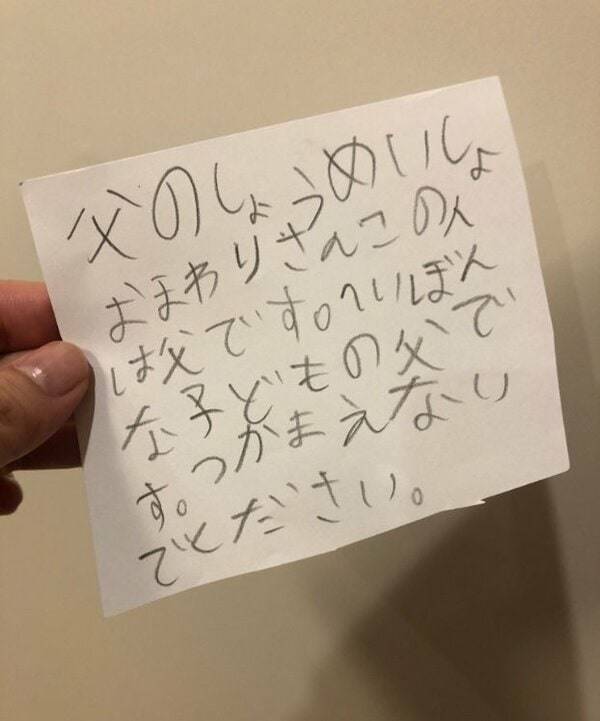 父のしょうめいしょ
おまわりさんこの人
は父です。へいぼん
な子どもの父で
す。つかまえない
でください。